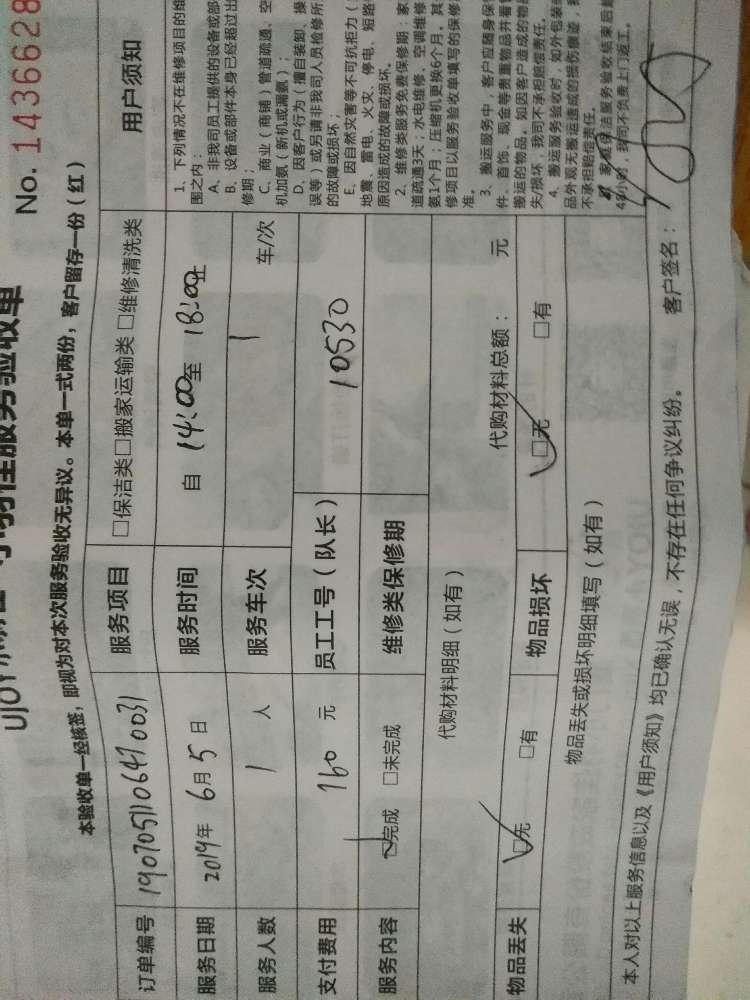 UJOY
服务验收单
No. 1436628
本验收单一经核签，即视为对本次服务验收无异议。本单一式两份，客户留存一份（红）
订单编号 190705110647 0031 服务项目 □保洁类□搬家运输类 □维修清洗类
服务日期 2019年 6月 5 日 服务时间 自 14:00 至 18:00止
服务人数 1 人 服务车次 1 车/次
支付费用 160 元 员工工号（队长） 10530
服务内容 □完成 □未完成 维修类保修期
代购材料明细（如有） 代购材料总额： 元
物品丢失 □无 □有 物品损坏 □无 □有
物品丢失或损坏明细填写（如有）
本人对以上服务信息以及《用户须知》均已确认无误，不存在任何争议纠纷。 客户签名：
用户须知
1、下列情况不在维修项目的维
围之内：
A、非我司员工提供的设备或部
B、设备或部件本身已经超过出
修期；
C、商业（商铺）管道疏通、空
机加氨（新机或漏氨）；
D、因客户行为（擅自装卸、操
误等）或另请非我司人员检修所
的故障或损坏；
E、因自然灾害等不可抗拒力（
地震、雷电、火灾、停电、短路
原因造成的故障或损坏。
2、维修类服务免费保修期：家
道疏通3天；水电维修、空调维修
氨1个月；压缩机更换6个月，其
修项目以服务验收单填写的保修
准。
3、搬运服务中，客户应随身保
件、首饰、现金等贵重物品并看
搬运的物品。如因客户造成的物品
失/损坏，我司不承担赔偿责任。
4、搬运服务验收时，如外包装
品外观无搬运造成的损伤痕迹，
不承担赔偿责任。
保洁服务验收结束后
48小时，我司不负责上门返工。